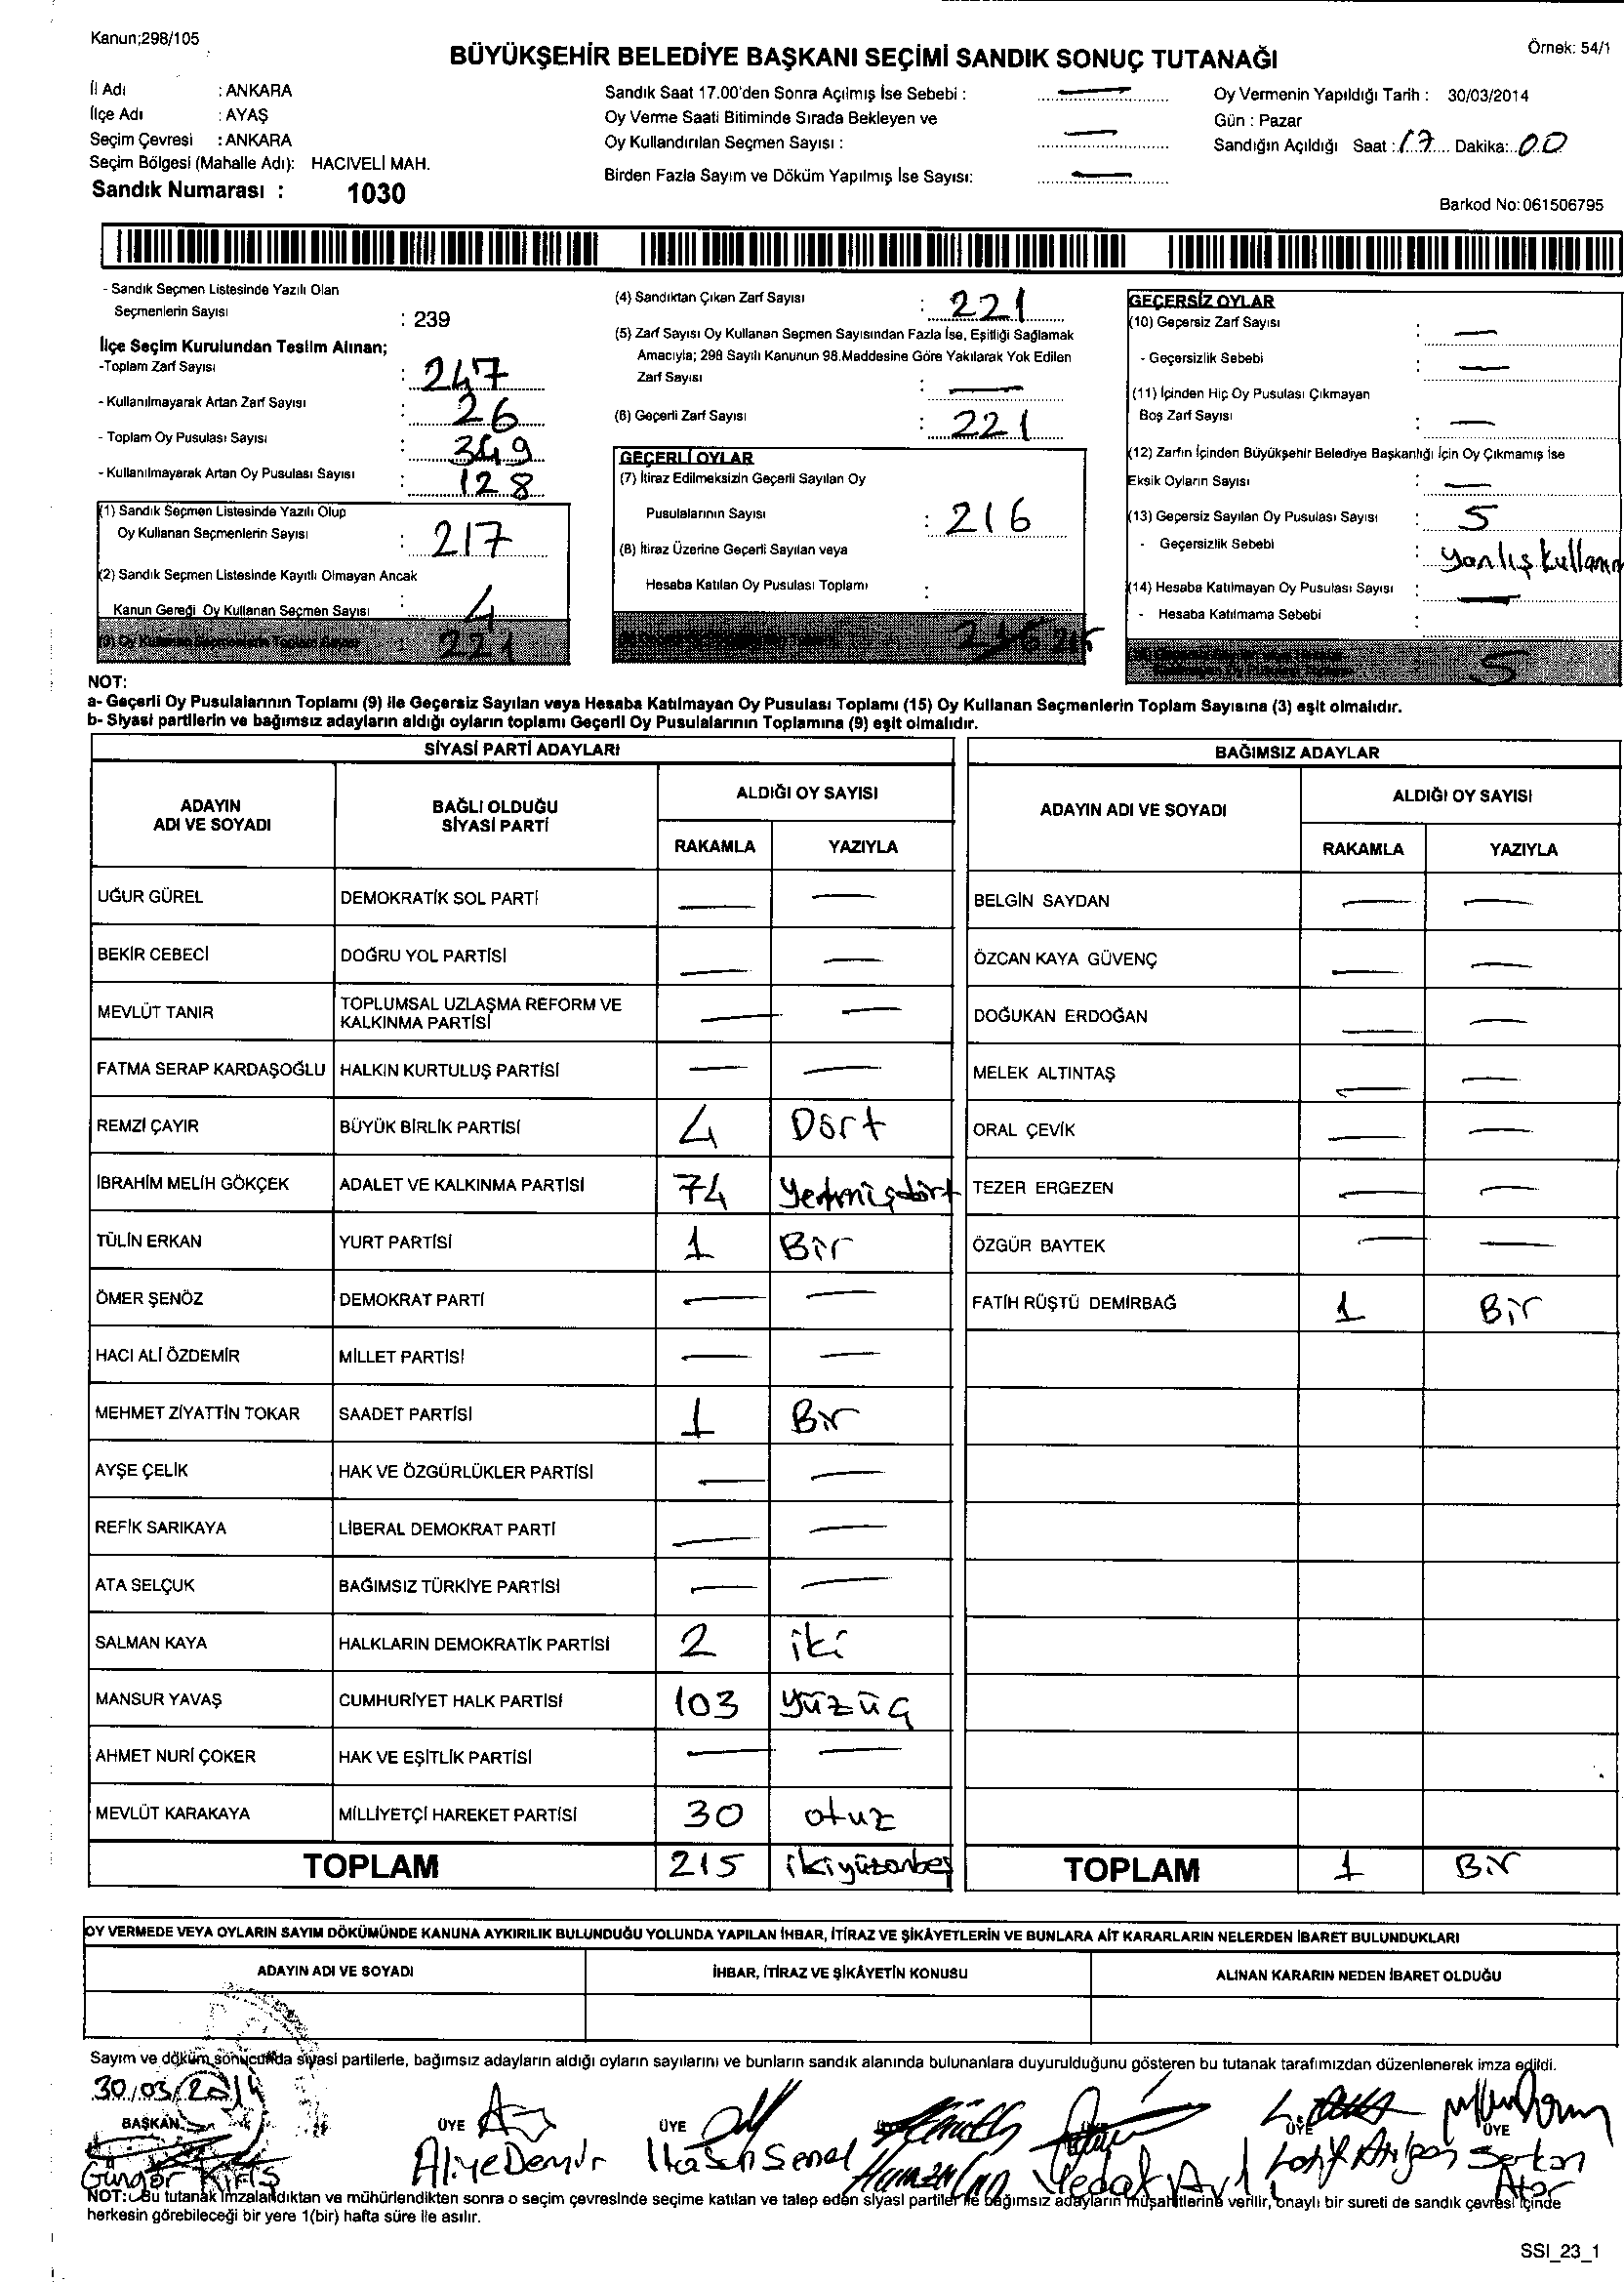 Kanun;298/105
Örnek: 54/1
BÜYÜKŞEHİR BELEDİYE BAŞKANI SEÇİMİ SANDIK SONUÇ TUTANAĞI
İl Adı : ANKARA
İlçe Adı : AYAŞ
Seçim Çevresi : ANKARA
Seçim Bölgesi (Mahalle Adı): HACIVELİ MAH.
Sandık Numarası : 1030
Sandık Saat 17.00'den Sonra Açılmış İse Sebebi : —
Oy Verme Saati Bitiminde Sırada Bekleyen ve
Oy Kullandırılan Seçmen Sayısı : —
Birden Fazla Sayım ve Döküm Yapılmış İse Sayısı: —
Oy Vermenin Yapıldığı Tarih : 30/03/2014
Gün : Pazar
Sandığın Açıldığı Saat : 17 Dakika: 00
Barkod No:061506795
- Sandık Seçmen Listesinde Yazılı Olan
Seçmenlerin Sayısı : 239
İlçe Seçim Kurulundan Teslim Alınan;
-Toplam Zarf Sayısı : 247
- Kullanılmayarak Artan Zarf Sayısı : 26
- Toplam Oy Pusulası Sayısı : 349
- Kullanılmayarak Artan Oy Pusulası Sayısı : 128
(1) Sandık Seçmen Listesinde Yazılı Olup
Oy Kullanan Seçmenlerin Sayısı : 217
(2) Sandık Seçmen Listesinde Kayıtlı Olmayan Ancak
Kanun Gereği Oy Kullanan Seçmen Sayısı : 4
(3) Oy Kullanan Seçmenlerin Toplam Sayısı : 221
(4) Sandıktan Çıkan Zarf Sayısı : 221
(5) Zarf Sayısı Oy Kullanan Seçmen Sayısından Fazla İse, Eşitliği Sağlamak
Amacıyla; 298 Sayılı Kanunun 98.Maddesine Göre Yakılarak Yok Edilen
Zarf Sayısı : —
(6) Geçerli Zarf Sayısı : 221
GEÇERLİ OYLAR
(7) İtiraz Edilmeksizin Geçerli Sayılan Oy
Pusulalarının Sayısı : 216
(8) İtiraz Üzerine Geçerli Sayılan veya
Hesaba Katılan Oy Pusulası Toplamı :
GEÇERSİZ OYLAR
(10) Geçersiz Zarf Sayısı : —
- Geçersizlik Sebebi : —
(11) İçinden Hiç Oy Pusulası Çıkmayan
Boş Zarf Sayısı : —
(12) Zarfın İçinden Büyükşehir Belediye Başkanlığı İçin Oy Çıkmamış İse
Eksik Oyların Sayısı : —
(13) Geçersiz Sayılan Oy Pusulası Sayısı : 5
- Geçersizlik Sebebi : yanlış kullanım
(14) Hesaba Katılmayan Oy Pusulası Sayısı : —
- Hesaba Katılmama Sebebi :
5
NOT:
a- Geçerli Oy Pusulalarının Toplamı (9) ile Geçersiz Sayılan veya Hesaba Katılmayan Oy Pusulası Toplamı (15) Oy Kullanan Seçmenlerin Toplam Sayısına (3) eşit olmalıdır.
b- Siyasi partilerin ve bağımsız adayların aldığı oyların toplamı Geçerli Oy Pusulalarının Toplamına (9) eşit olmalıdır.
SİYASİ PARTİ ADAYLARI
ADAYIN ADI VE SOYADI
BAĞLI OLDUĞU SİYASİ PARTİ
ALDIĞI OY SAYISI
RAKAMLA YAZIYLA
UĞUR GÜREL DEMOKRATİK SOL PARTİ — —
BEKİR CEBECİ DOĞRU YOL PARTİSİ — —
MEVLÜT TANIR TOPLUMSAL UZLAŞMA REFORM VE KALKINMA PARTİSİ — —
FATMA SERAP KARDAŞOĞLU HALKIN KURTULUŞ PARTİSİ — —
REMZİ ÇAYIR BÜYÜK BİRLİK PARTİSİ 4 Dört
İBRAHİM MELİH GÖKÇEK ADALET VE KALKINMA PARTİSİ 74 Yetmişdört
TÜLİN ERKAN YURT PARTİSİ 1 Bir
ÖMER ŞENÖZ DEMOKRAT PARTİ — —
HACI ALİ ÖZDEMİR MİLLET PARTİSİ — —
MEHMET ZİYATTİN TOKAR SAADET PARTİSİ 1 Bir
AYŞE ÇELİK HAK VE ÖZGÜRLÜKLER PARTİSİ — —
REFİK SARIKAYA LİBERAL DEMOKRAT PARTİ — —
ATA SELÇUK BAĞIMSIZ TÜRKİYE PARTİSİ — —
SALMAN KAYA HALKLARIN DEMOKRATİK PARTİSİ 2 iki
MANSUR YAVAŞ CUMHURİYET HALK PARTİSİ 103 yüzüç
AHMET NURİ ÇOKER HAK VE EŞİTLİK PARTİSİ — —
MEVLÜT KARAKAYA MİLLİYETÇİ HAREKET PARTİSİ 30 otuz
TOPLAM 215 ikiyüzonbeş
BAĞIMSIZ ADAYLAR
ADAYIN ADI VE SOYADI
ALDIĞI OY SAYISI
RAKAMLA YAZIYLA
BELGİN SAYDAN — —
ÖZCAN KAYA GÜVENÇ — —
DOĞUKAN ERDOĞAN — —
MELEK ALTINTAŞ — —
ORAL ÇEVİK — —
TEZER ERGEZEN — —
ÖZGÜR BAYTEK — —
FATİH RÜŞTÜ DEMİRBAĞ 1 Bir
TOPLAM 1 Bir
OY VERMEDE VEYA OYLARIN SAYIM DÖKÜMÜNDE KANUNA AYKIRILIK BULUNDUĞU YOLUNDA YAPILAN İHBAR, İTİRAZ VE ŞİKÂYETLERİN VE BUNLARA AİT KARARLARIN NELERDEN İBARET BULUNDUKLARI
ADAYIN ADI VE SOYADI
İHBAR, İTİRAZ VE ŞİKÂYETİN KONUSU
ALINAN KARARIN NEDEN İBARET OLDUĞU
Sayım ve döküm sonucunda siyasi partilerle, bağımsız adayların aldığı oyların sayılarını ve bunların sandık alanında bulunanlara duyurulduğunu gösteren bu tutanak tarafımızdan düzenlenerek imza edildi.
30/03/2014
BAŞKAN ÜYE ÜYE ÜYE ÜYE
Güngör Aliye Demir Hasan Şenel Vedat Serkan
NOT: Bu tutanak imzalandıktan ve mühürlendikten sonra o seçim çevresinde seçime katılan ve talep eden siyasi partiler ile bağımsız adayların müşahitlerine verilir, onaylı bir sureti de sandık çevresi içinde
herkesin görebileceği bir yere 1(bir) hafta süre ile asılır.
SSI_23_1